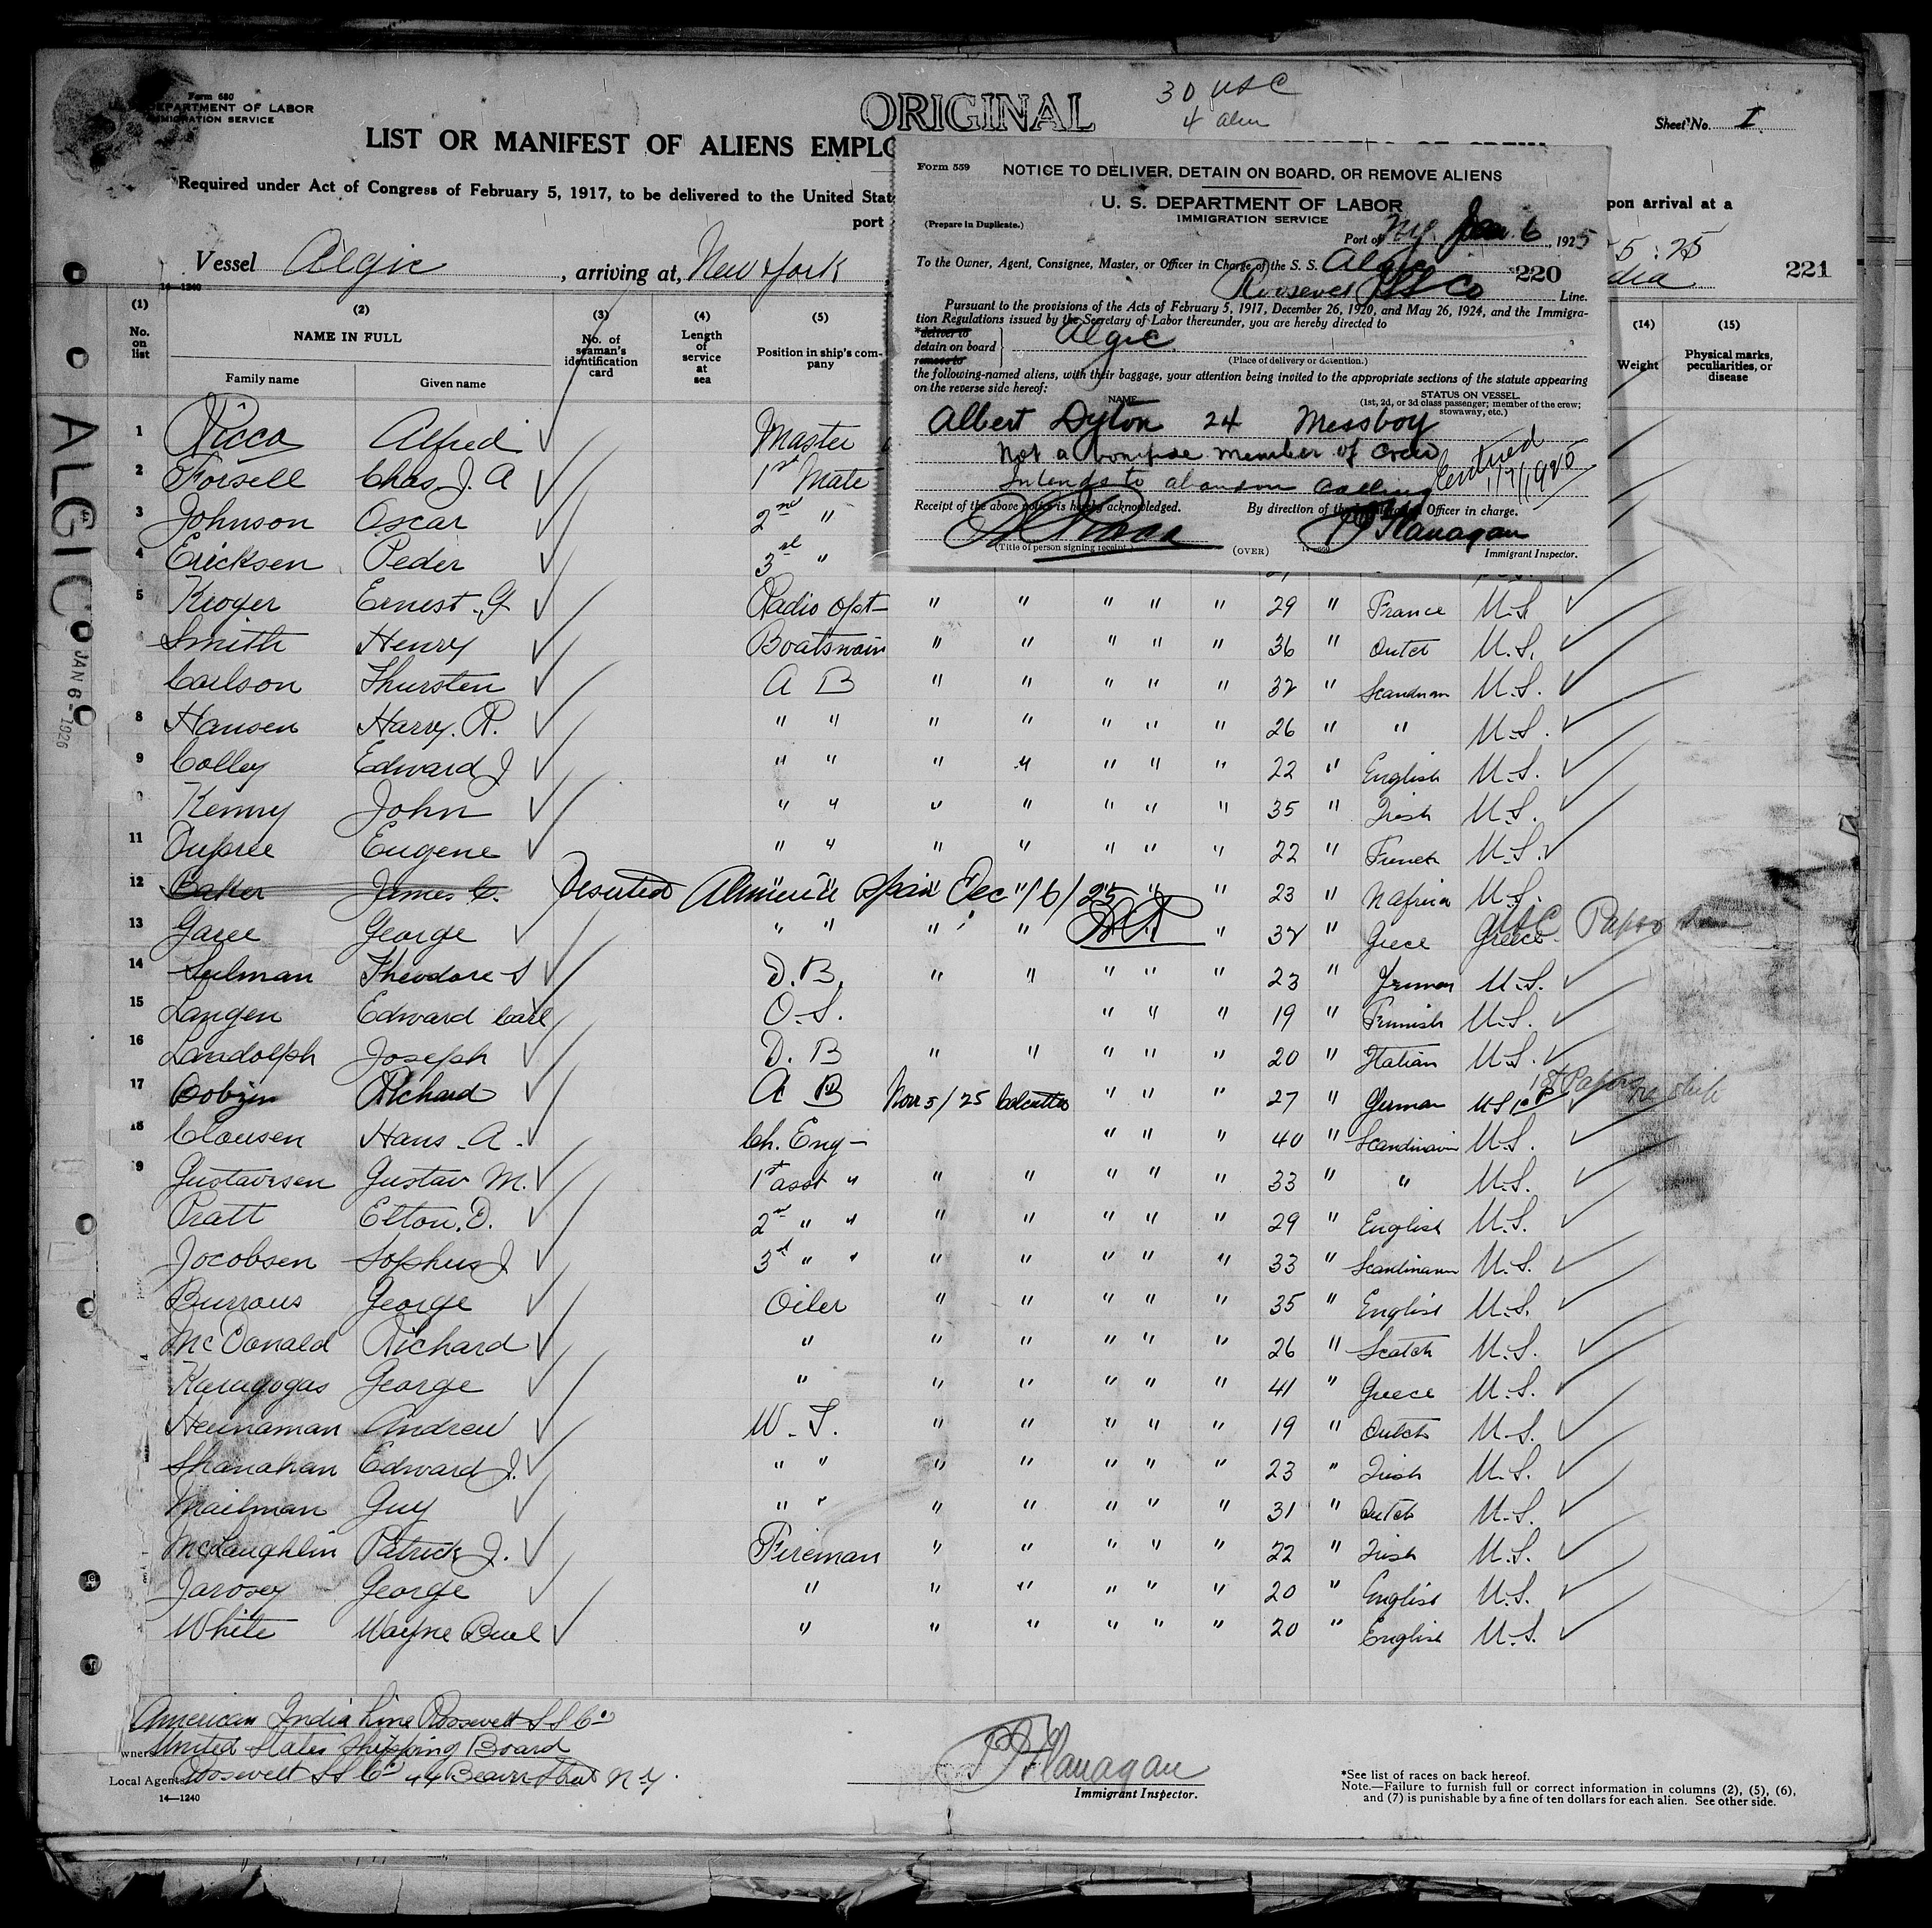 Form 680
U. S. DEPARTMENT OF LABOR
IMMIGRATION SERVICE
ORIGINAL
30 USC
4 alien
Sheet No. I
LIST OR MANIFEST OF ALIENS EMPLO
Required under Act of Congress of February 5, 1917, to be delivered to the United Stat
pon arrival at a
port
Vessel Algic, arriving at, New York
5 : 25
dia
221
14—1240
Form 559
NOTICE TO DELIVER, DETAIN ON BOARD, OR REMOVE ALIENS
U. S. DEPARTMENT OF LABOR
IMMIGRATION SERVICE
(Prepare in Duplicate.)
Port of NY Jan. 6, 1925
To the Owner, Agent, Consignee, Master, or Officer in Charge of the S. S. Algic 220
Roosevelt SS Co Line.
Pursuant to the provisions of the Acts of February 5, 1917, December 26, 1920, and May 26, 1924, and the Immigra-
tion Regulations issued by the Secretary of Labor thereunder, you are hereby directed to
*deliver to
detain on board
remove to
Algic
(Place of delivery or detention.)
the following-named aliens, with their baggage, your attention being invited to the appropriate sections of the statute appearing
on the reverse side hereof:
NAME
STATUS ON VESSEL
(1st, 2d, or 3d class passenger; member of the crew;
stowaway, etc.)
Albert Dyton 24 Messboy
Not a bonifide member of crew
Intends to abandon calling
Receipt of the above notice is hereby acknowledged.
By direction of the Officer in charge.
P Flanagan
(Title of person signing receipt.)
(OVER)
Immigrant Inspector.
(1) No. on list
(2) NAME IN FULL
Family name Given name
(3) No. of seaman's identification card
(4) Length of service at sea
(5) Position in ship's company
(14) Weight
(15) Physical marks, peculiarities, or disease
1 Ricca Alfred Master
2 Forsell Chas. J. A 1st Mate
3 Johnson Oscar 2nd "
4 Ericksen Peder 3rd "
5 Kroger Ernest. G Radio opt " " " " " 29 " France U.S
Smith Henry Boatswain " " " " " 36 " Dutch U.S.
Carlson Thursten A B " " " " " 32 " U.S.
8 Hansen Harry. R. " " " " " " " 26 " " U.S.
9 Colley Edward J " " " " " " " 22 " English U.S.
Kenny John " " " " " " " 35 " Irish U.S.
11 Dupree Eugene " " " " " " " 22 " French U.S.
12 Baker James C. Deserted Almeria Spain Dec /6/25 " 23 " U.S.
13 Garee George " " " " " 32 " Greece Greece USC Papers
14 Sulman Theodore S D.B. " " " " " 23 " U.S.
15 Langen Edward Carl O.S. " " " 19 " Finnish U.S.
16 Landolph Joseph D. B " " " " " 20 " Italian U.S.
17 Richard A B Nov 5/25 Calcutta " " " 27 " German US 1st Papers
18 Clausen Hans. A. Ch. Eng " " " 40 " Scandinavian U.S.
19 Gustavsen Gustav M. 1st asst " " " " " " 33 " " U.S.
Pratt Elton. D. 2nd " " " " " " " 29 " English U.S.
Jocobsen Sophus J 3d " " " " " " " 33 " U.S.
Burrous George Oiler " " " " " 35 " English U.S.
McDonald Richard " " " " " " 26 " Scotch U.S.
Karagogas George " " " " " " 41 " Greece U.S.
Heinaman Andrew W. T. " " " " " 19 " Dutch U.S.
Shanahan Edward J. " " " " " " " 23 " Irish U.S.
Mailman Guy " " " " " " " 31 " Dutch U.S.
McLaughlin Patrick J. Fireman " " " " " 22 " Irish U.S.
Jarosey George " " " " " " 20 " English U.S.
White Wayne " " " " " " 20 " English U.S.
ALGIC
JAN 6 - 1926
American India Line Roosevelt SS Co
wners United States Shipping Board
Local Agents Roosevelt SS Co 44 Beaver Street N.Y.
14—1240
P Flanagan
Immigrant Inspector.
*See list of races on back hereof.
Note.—Failure to furnish full or correct information in columns (2), (5), (6),
and (7) is punishable by a fine of ten dollars for each alien. See other side.